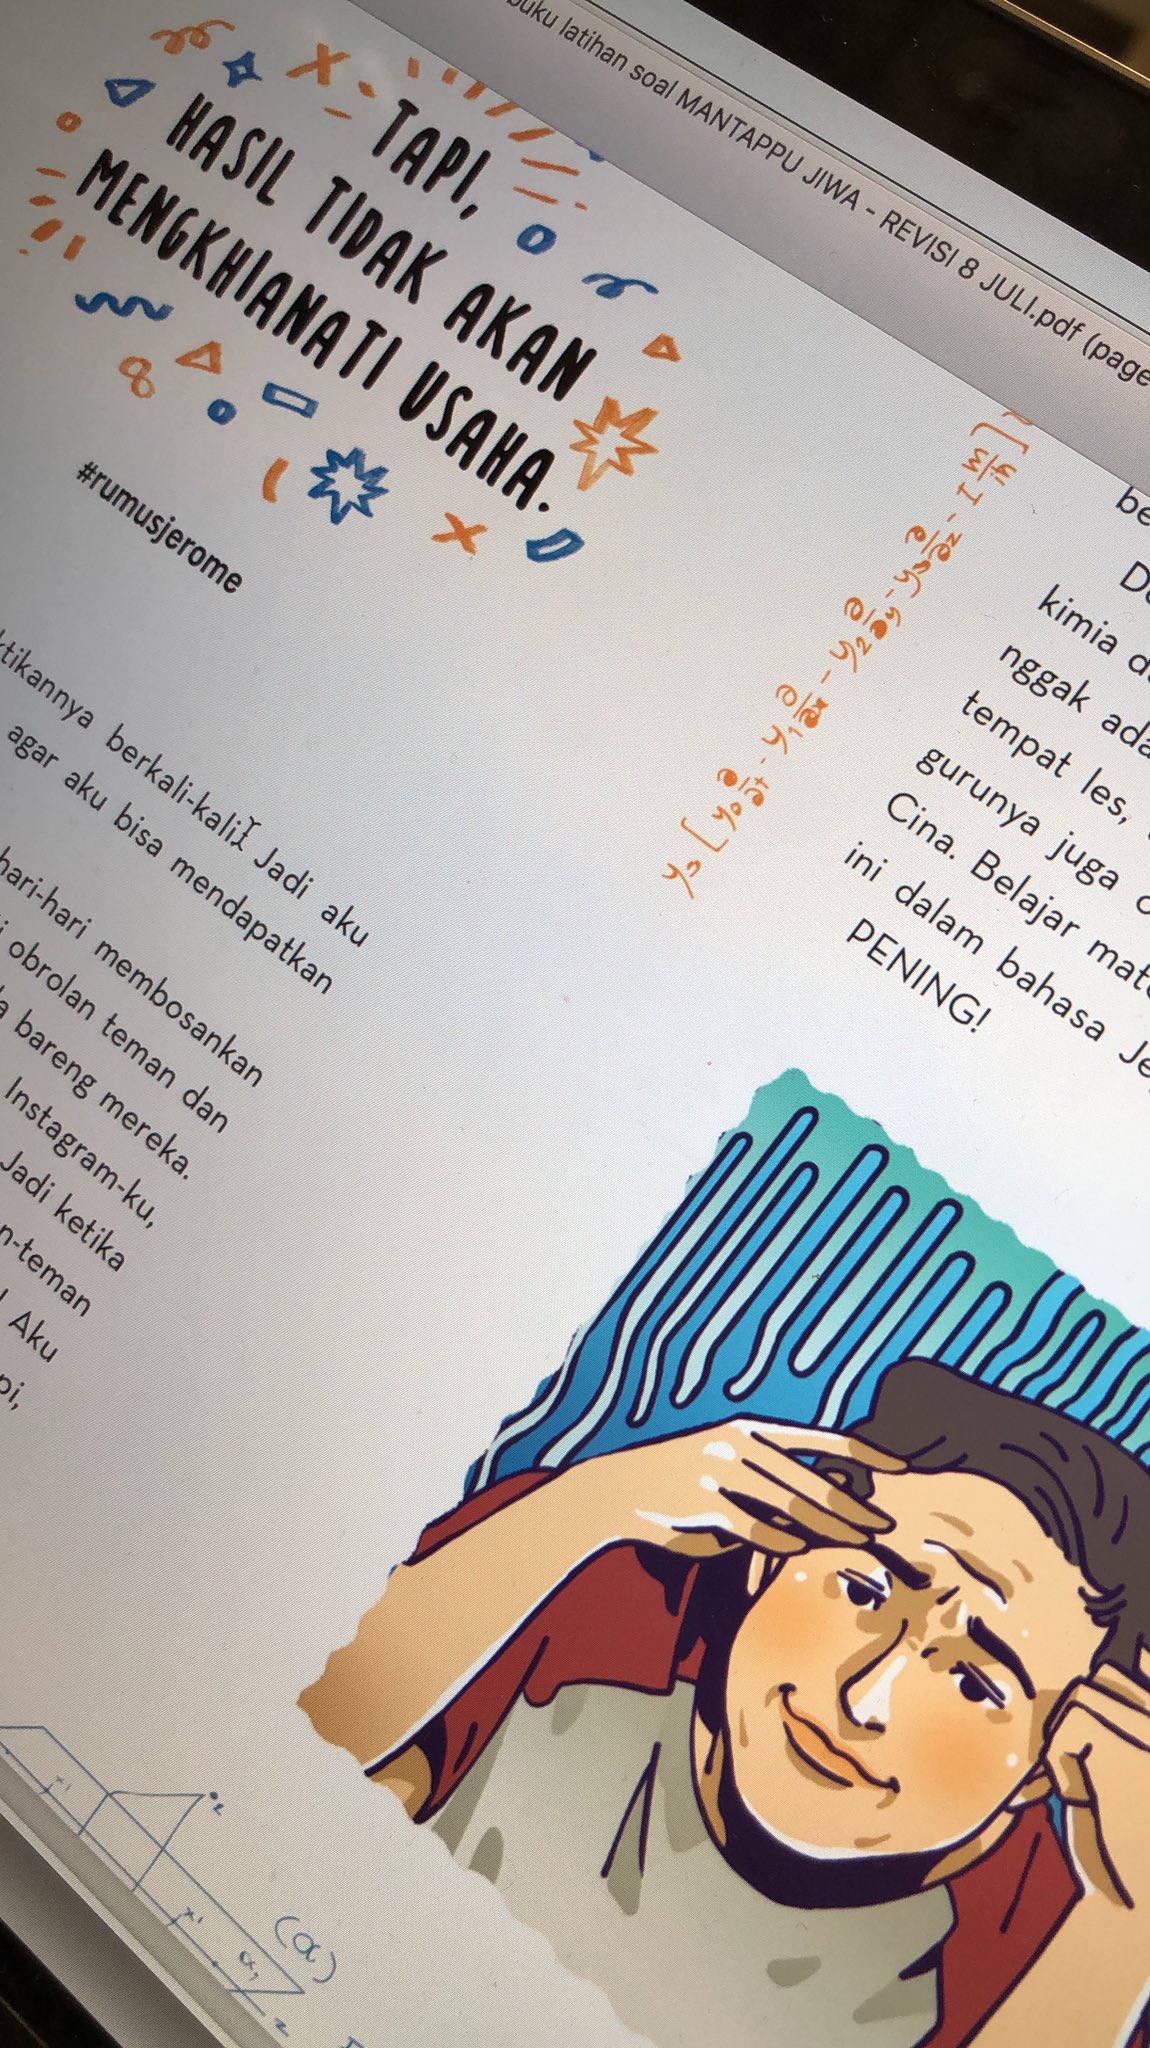 buku latihan soal MANTAPPU JIWA - REVISI 8 JULI.pdf (page
TAPI,
HASIL TIDAK AKAN
MENGKHIANATI USAHA.
#rumusjerome
berkali-kali. Jadi aku
agar aku bisa mendapatkan
hari-hari membosankan
obrolan teman dan
bareng mereka.
Instagram-ku,
Jadi ketika
teman
Aku
be
kimia d
nggak ada
tempat les,
gurunya juga
Cina. Belajar mat
ini dalam bahasa Je
PENING!
(a)